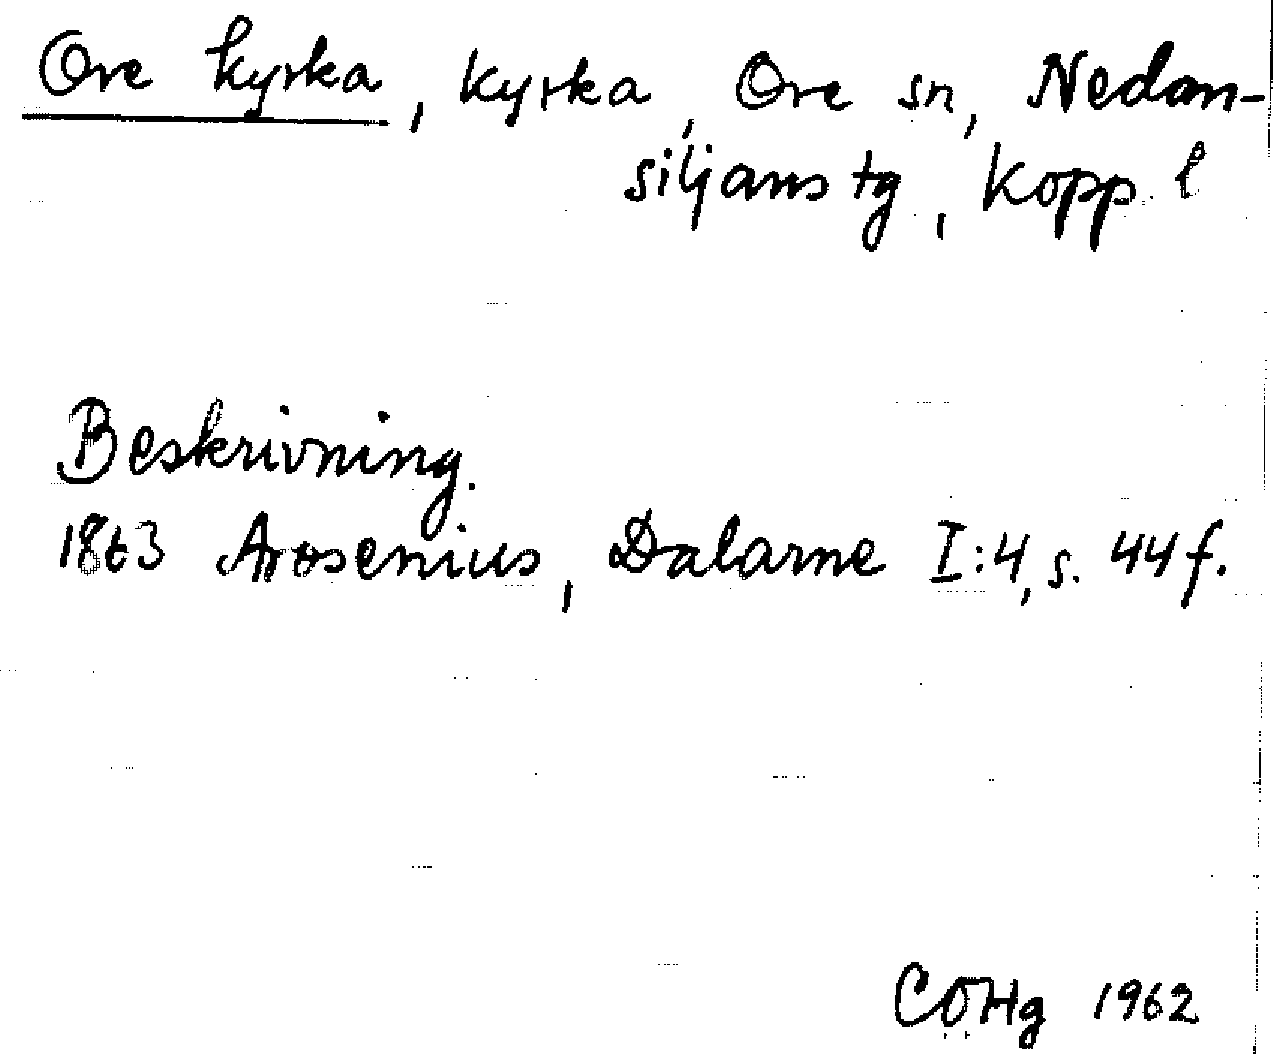 Ore kyrka, kyrka, Ore sn, Nedan-
siljans tg, Kopp. l
Beskrivning.
1863 Arosenius, Dalarne I:4, s. 44 f.
COHg 1962